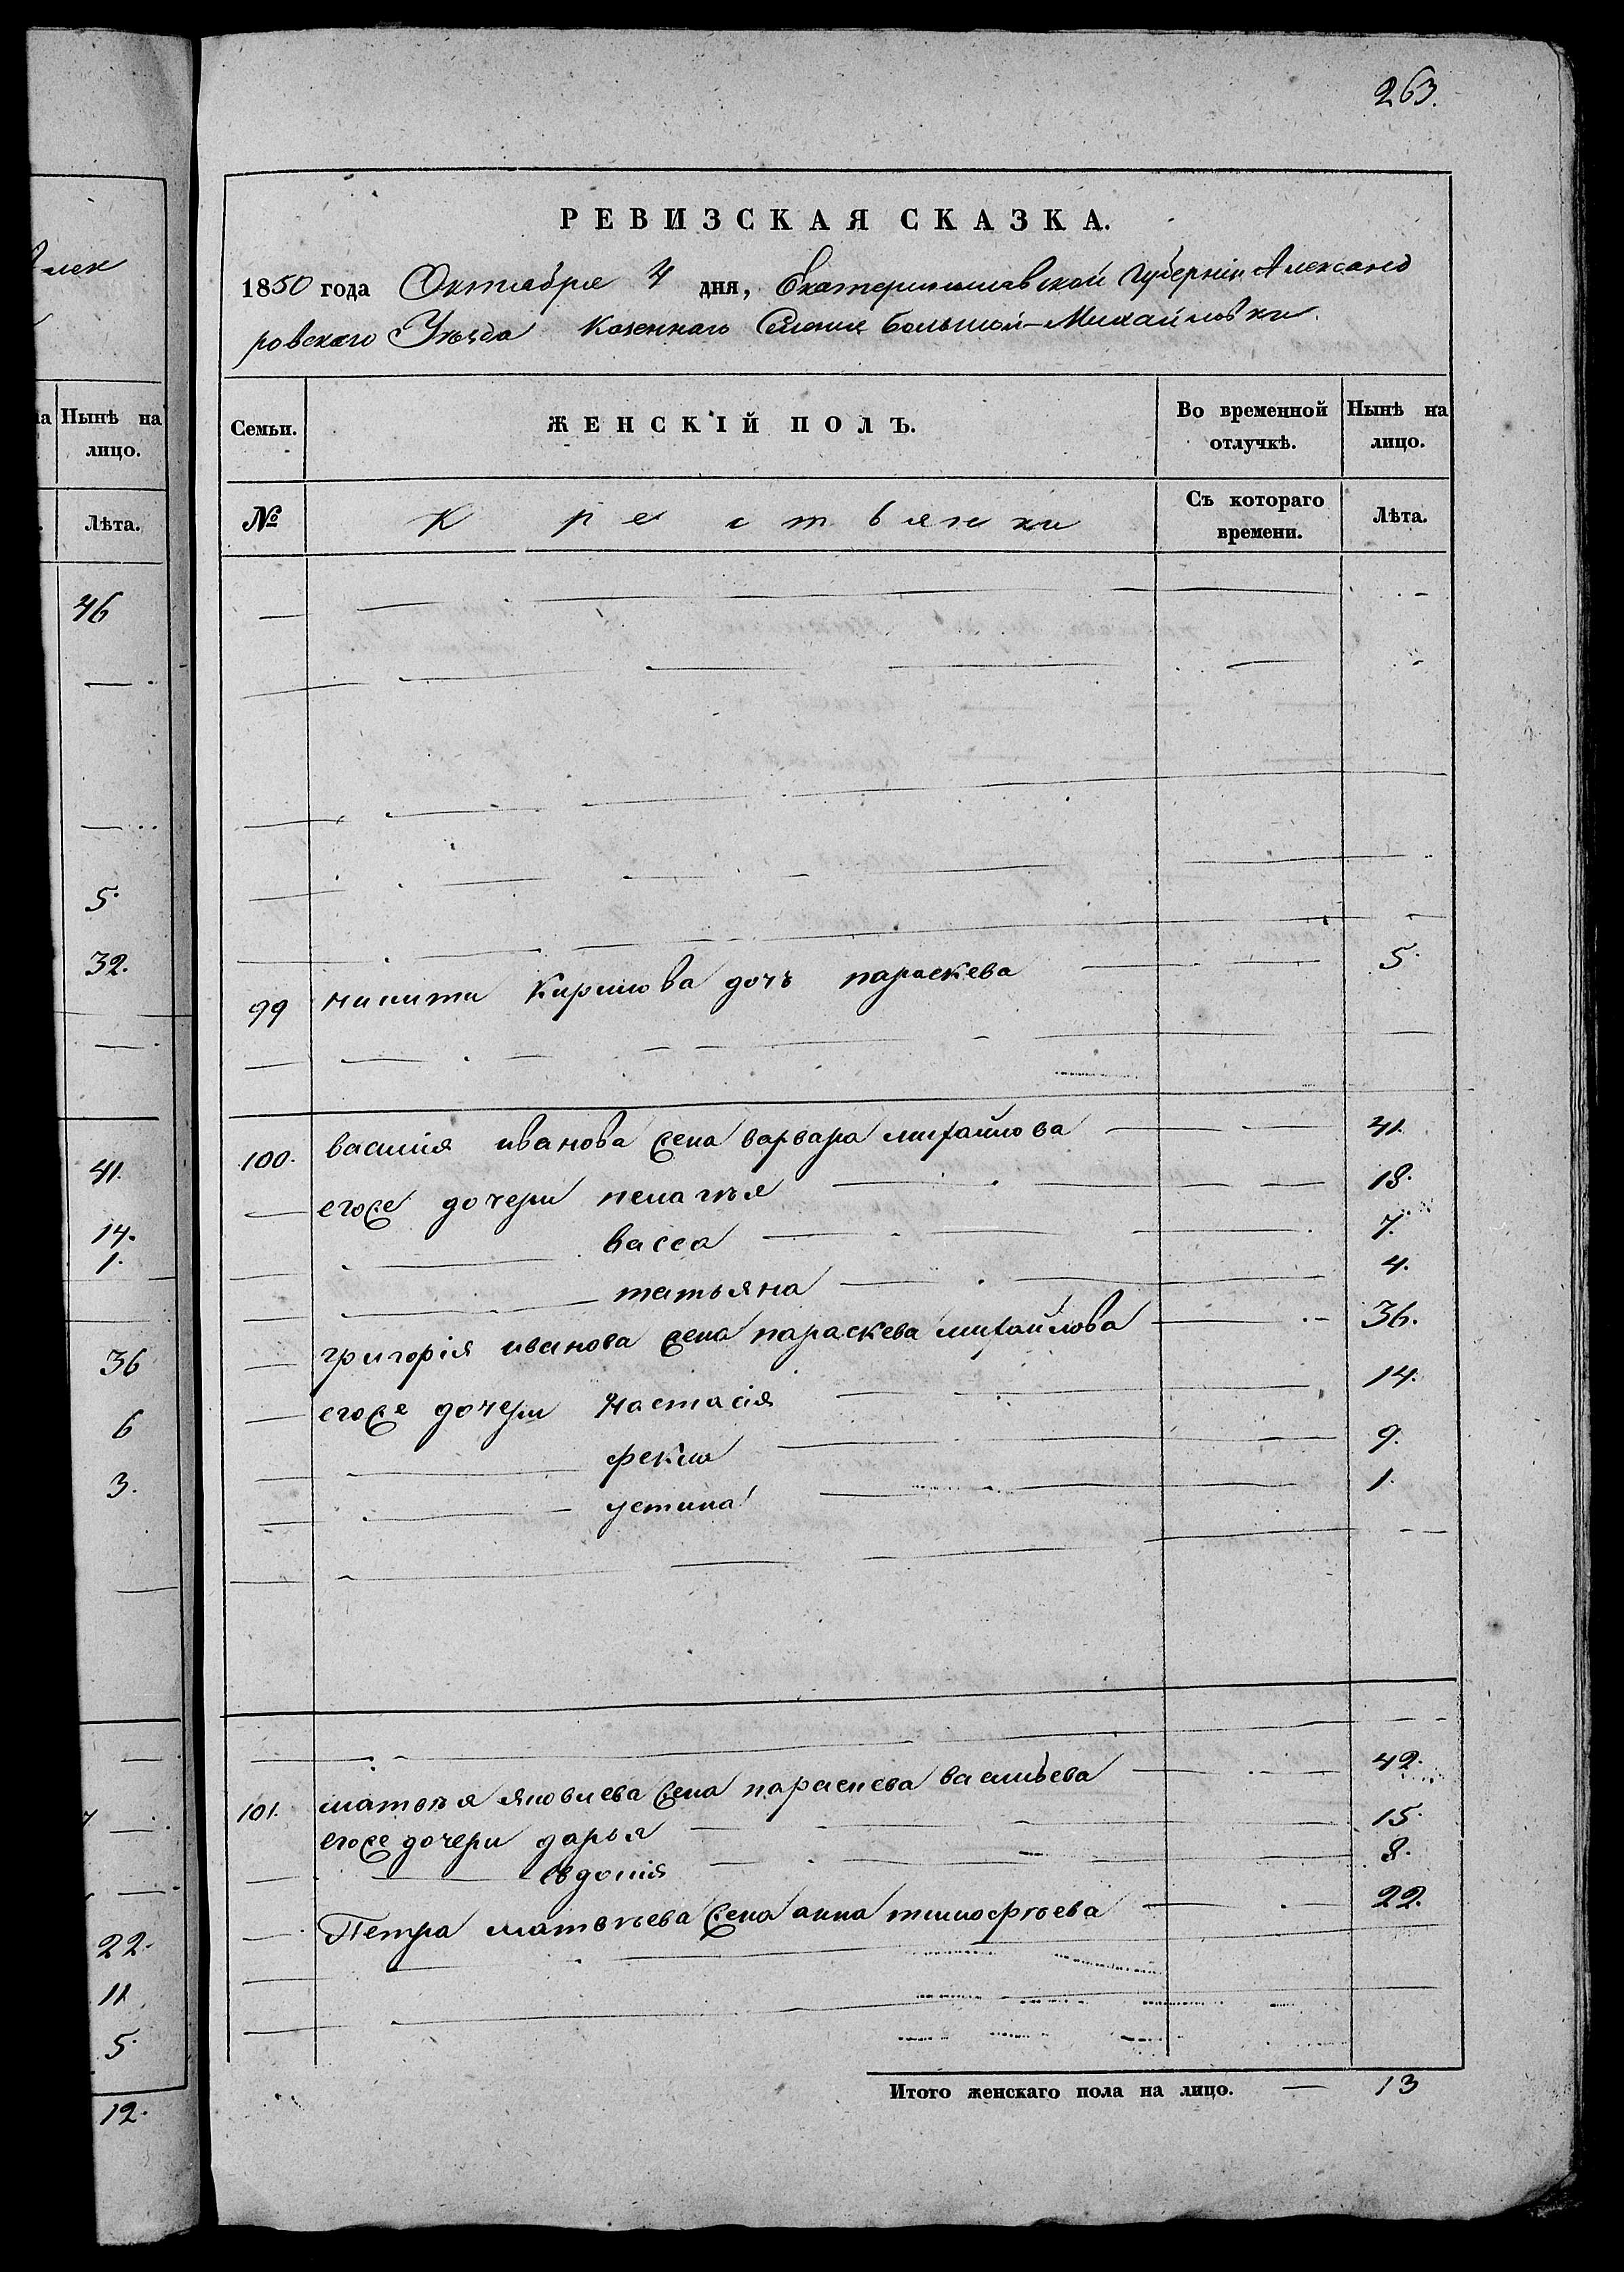 263.
РЕВИЗСКАЯ СКАЗКА.
1850 года Октября 4 дня, Екатеринославской Губерніи Александ
ровскаго Уѣзда Казеннаго Селенія Большой-Михайловки.
Нынѣ на
лицо.
Лѣта.
46
5.
32.
41.
14.
1.
36
6
3.
22.
11
5.
12.
Семьи. ЖЕНСКІЙ ПОЛЪ. Во временной отлучкѣ. Нынѣ на лицо.
№ Крестьянки Съ котораго времени. Лѣта.
99 никиты Кирилова дочь параскева 5.
100. василія иванова жена варвара михайлова 41.
егоже дочери пелагѣя 18.
васса 7.
татьяна 4.
григорія иванова жена параскева михайлова 36.
егоже дочери Настасія 14.
фекла 9.
устина 1.
101. матвѣя яковлева жена параскева васильева 42.
егоже дочери дарья 15.
евдокія 8.
Петра матвѣева жена анна тимофѣева 22.
Итого женскаго пола на лицо. — 13